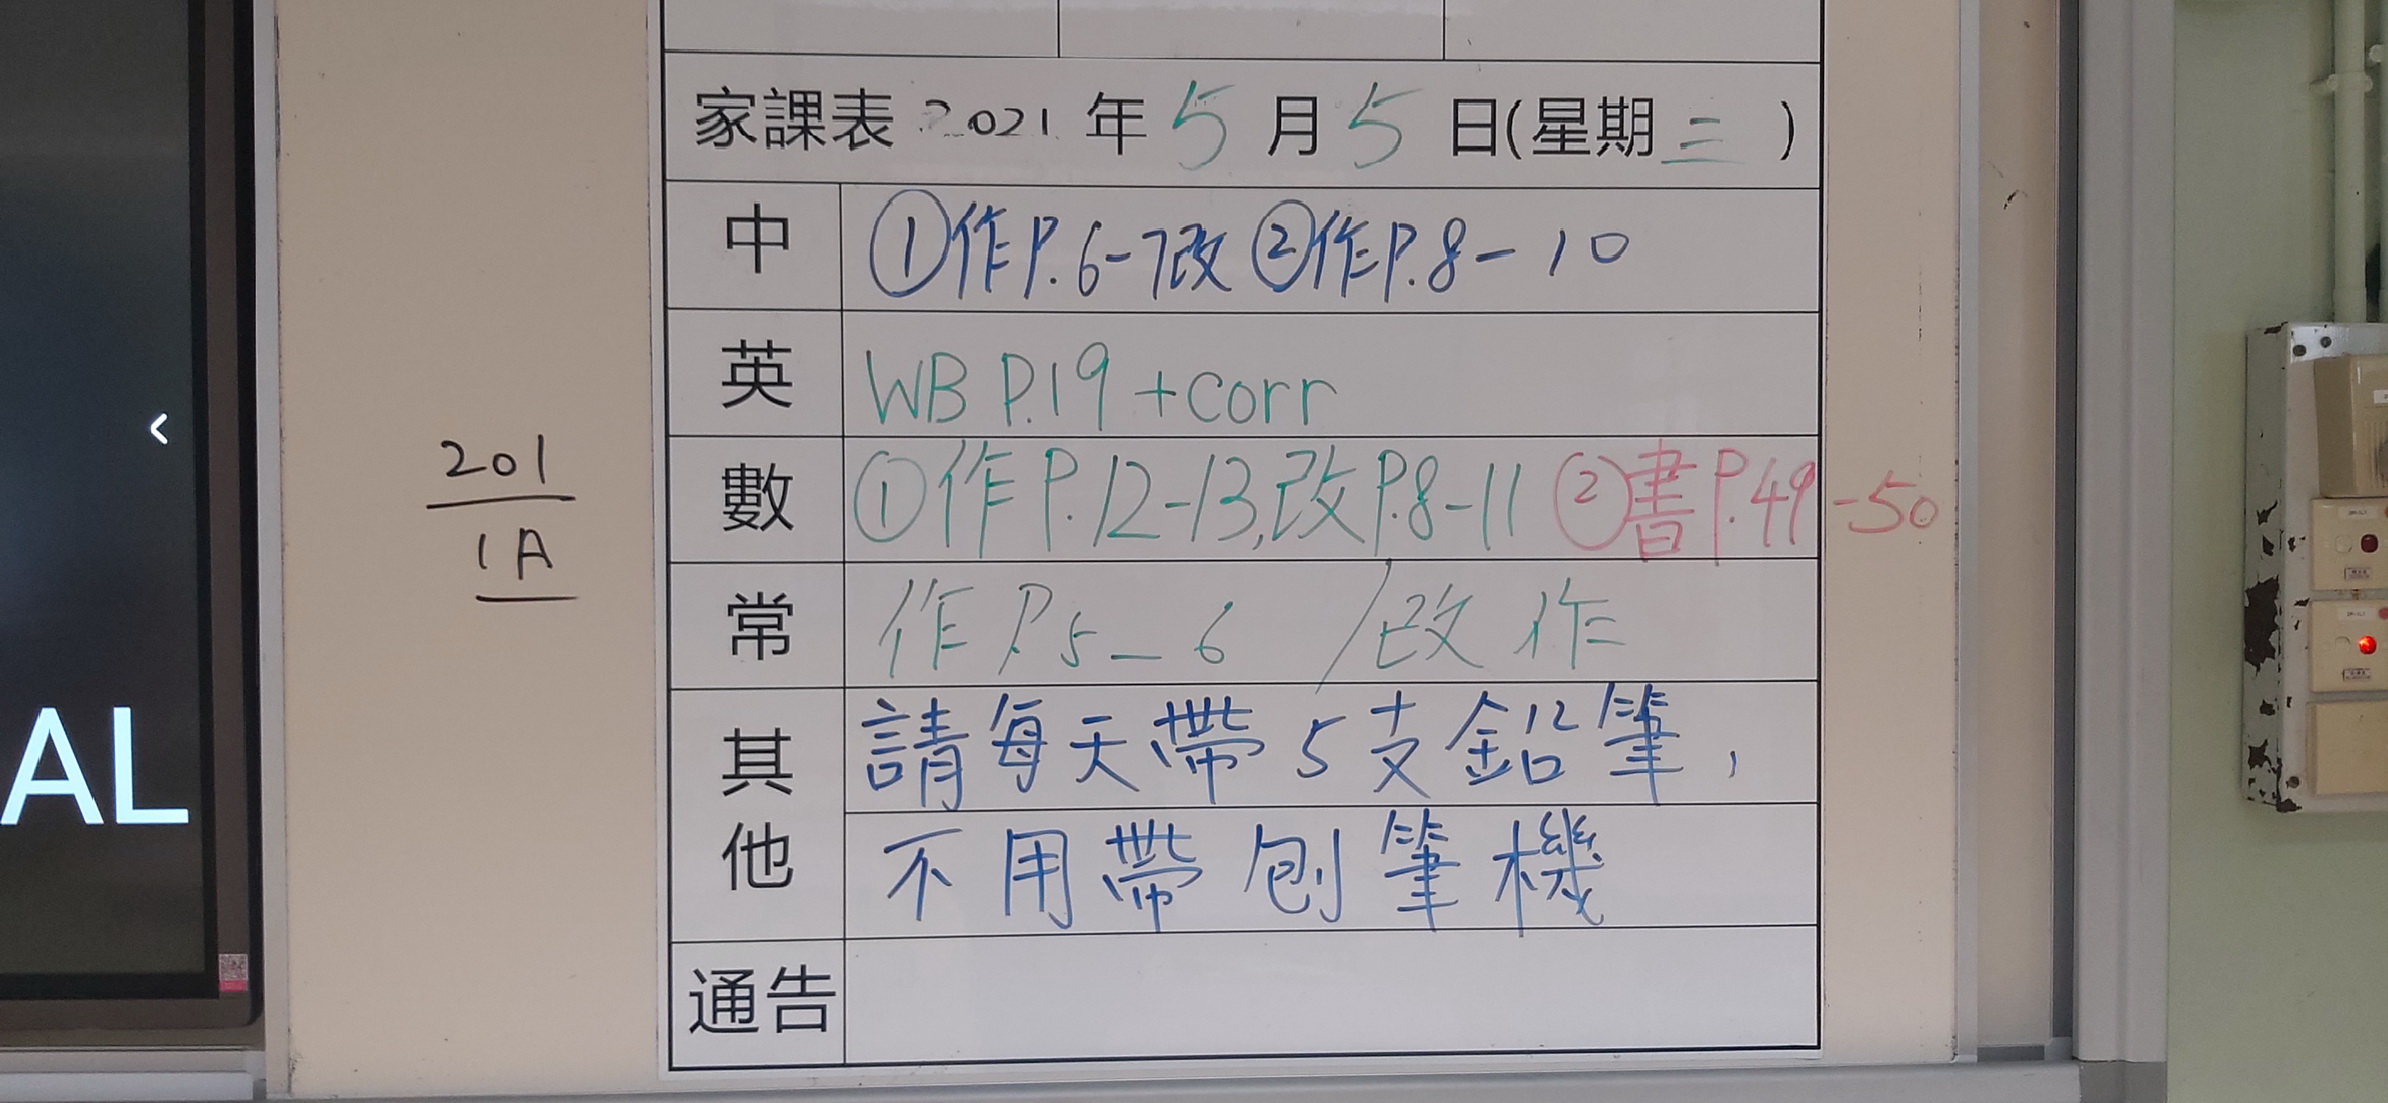 家課表 2021 年 5 月 5 日(星期 三 )
中 ①作P.6-7改 ②作P.8-10
英 WB P.19 +corr
數 ①作P.12-13,改P.8-11 ②書P.49-50
常 作P.5-6 /改作
其他 請每天帶5支鉛筆,
不用帶刨筆機
通告
201
1A
<
AL